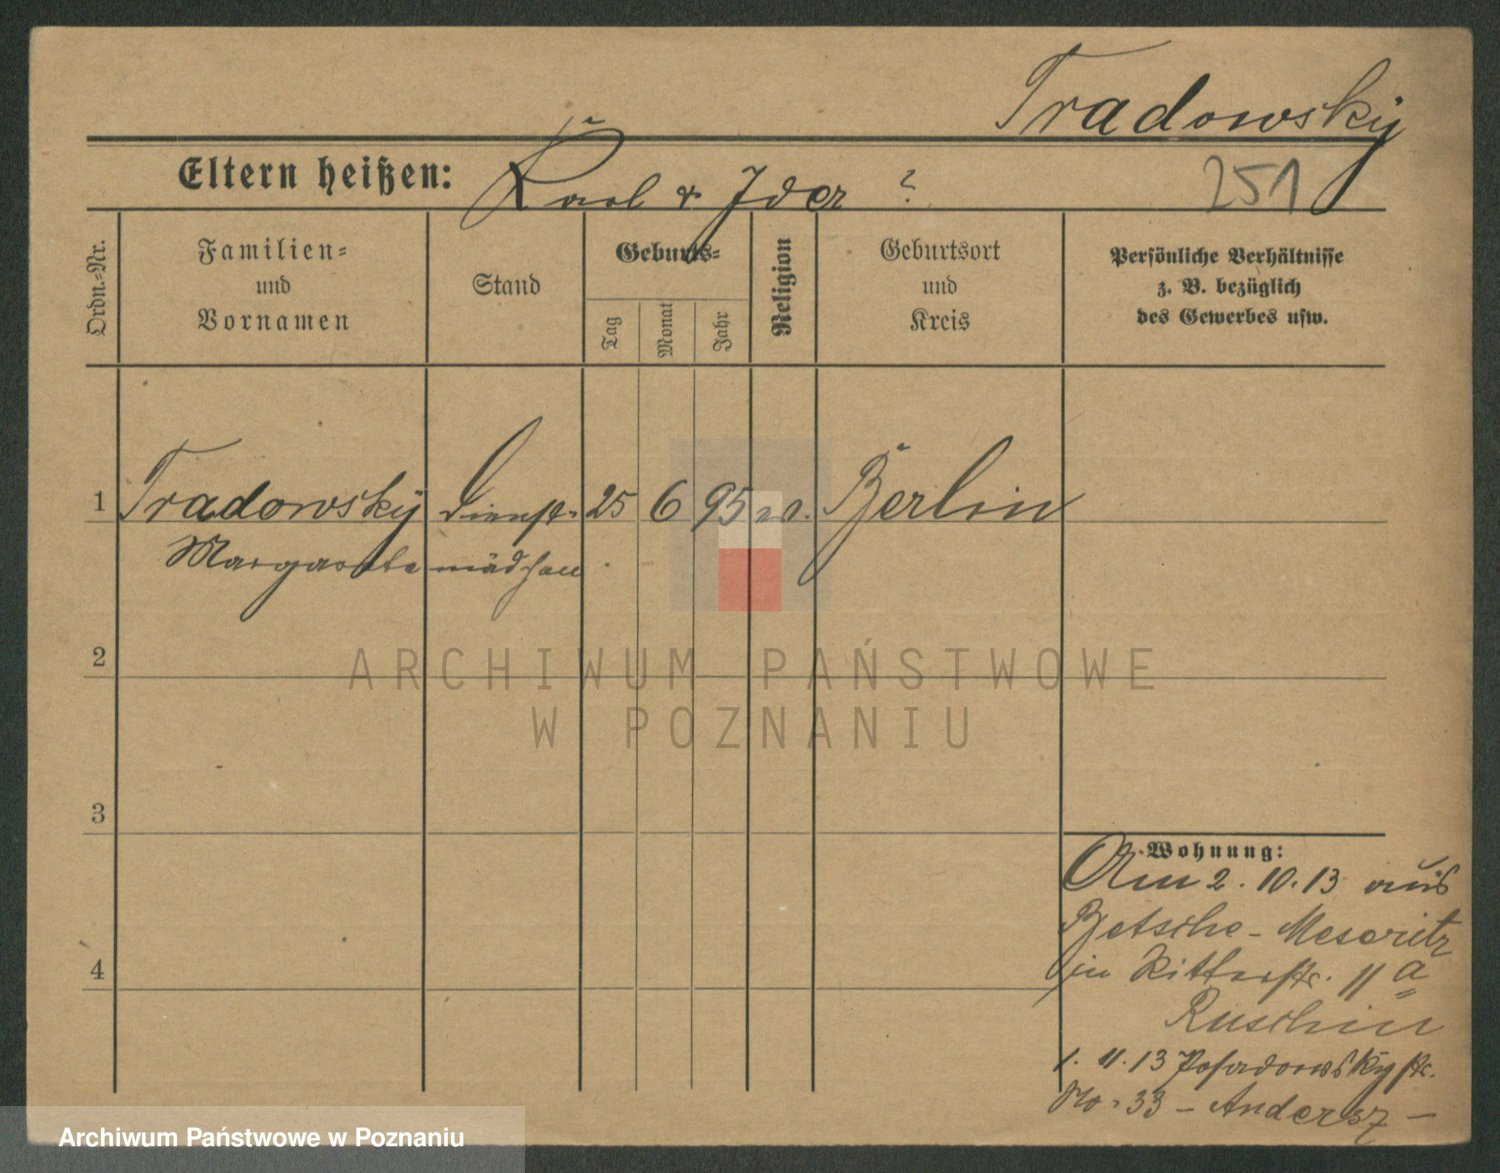 Tradowsky
Eltern heißen: Karl & Ider ?
251
Ordn.-Nr.
Familien-
und
Vornamen
Stand
Geburts-
Tag
Monat
Jahr
Religion
Geburtsort
und
Kreis
Persönliche Verhältnisse
z. B. bezüglich
des Gewerbes usw.
1 Tradowsky Dienst- 25 6 95 Berlin
Margarete mädchen
2
3
4
Wohnung:
Am 2. 10. 13 aus
Betsche - Meseritz
in Ritterstr. 11 a
Ruschin
1. 11. 13 Posadowskystr.
No. 33 - Andersz -
ARCHIWUM PAŃSTWOWE
W POZNANIU
Archiwum Państwowe w Poznaniu